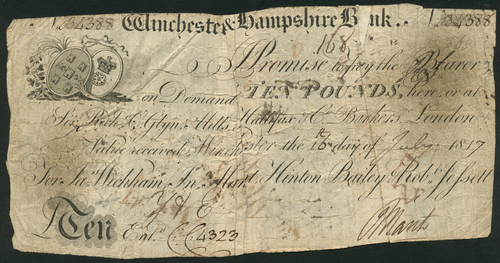 No. 34388 Winchester & Hampshire Bank. No. 34388
168
I Promise to pay the Bearer
on Demand TEN POUNDS, here, or at
Sir Rich. C. Glyn, Mills, Halifax & Co. Bankers, London
Value received, Winchester the 18 day of July 1817
For Jas. Wickham, Jn. Mant, Hinton Bailey & Robt. Jessett
Ten
Entd. C.C. 4323 J Mant